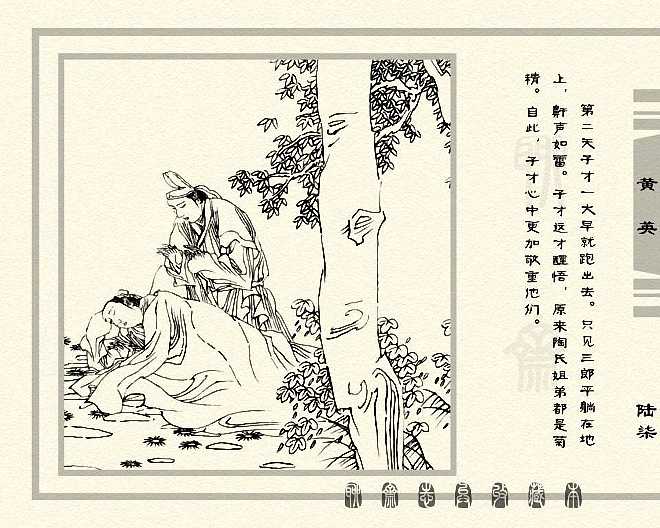 黄英
陆柒
第二天子才一大早就跑出去。只见三郎平躺在地
上，鼾声如雷。子才这才醒悟，原来陶氏姐弟都是菊
精。自此，子才心中更加敬重他们。